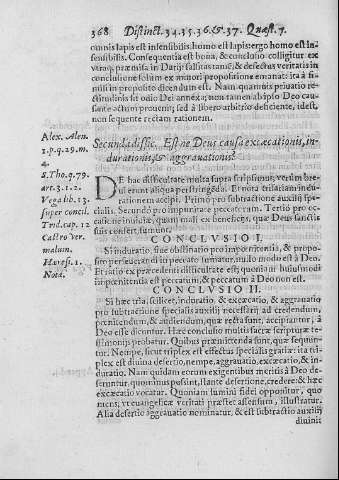 368 Distinct. 34.35.36.& 37. Quæst. 7.
omnis lapis est insensibilis: homo est lapis: ergo homo est in-
sensibilis. Consequentia est bona, & conclusio colligitur ex
vtraq; præmissa in Darij: falsitas tamẽ, & defectus veritatis in
conclusione solum ex minori propositione emanat: ita & in
finis in proposito dicendum est. Nam quamuis priuatio re-
ctitudinis sit odio Dei annexa, non tamen ab ipso Deo cau-
sante actum prouenit; sed à libero arbitrio deficiente, idest,
non sequente rectam rationem.
Secunda diffic. Est ne Deus causa excæcationis, in-
durationis, & aggrauationis?
Alex. Alen.
1.p.q.29.m.
4.
S. Tho.q.79.
art.3.1.2.
Vega lib.13.
super concil.
Trid.cap.12
Castro ver.
malum.
Hæresi.1.
Nota.
DE hac difficultate multa supra scripsimus, verum bre-
vi erunt aliqua perstringẽda. Et nota trifariam indu-
rationem accipi. Primo pro subtractione auxilij spe-
cialis. Secundò pro impunitate peccatorum. Tertiò pro oc-
casione sumpta, quam mali ex beneficijs, quæ Deus sanctis
suis confert, sumunt.
CONCLVSIO I.
Si induratio, siue obstinatio pro impœnitentia, & propo-
sito perseuerandi in peccato sumatur, nullo modo est à Deo.
Et ratio ex præcedenti difficultate est; quoniam huiusmodi
impœnitentia est peccatum, & peccatum à Deo non est.
CONCLVSIO II.
Si hæc tria, scilicet, induratio, & excæcatio, & aggrauatio
pro subtractione specialis auxilij necessarij ad credendum,
pœnitendum, & audiendum, quæ recta sunt, accipiantur, à
Deo esse dicuntur. Hæc conclusio multis sacræ scripturæ te-
stimonijs probatur. Quibus præmittenda sunt, quæ sequun-
tur. Nempe, sicut triplex est effectus specialis gratiæ: ita tri-
plex est diuina desertio, nempe, aggrauatio, excæcatio, & in-
duratio. Nam quidam eorum exigentibus meritis à Deo de-
seruntur, quominus possint, stante desertione, credere: & hæc
excæcatio vocatur. Quoniam lumini fidei opponitur, quo
mens, vt euangelicæ veritati præstet assensum, illustratur.
Alia desertio aggrauatio nominatur, & est subtractio auxilij
diuini